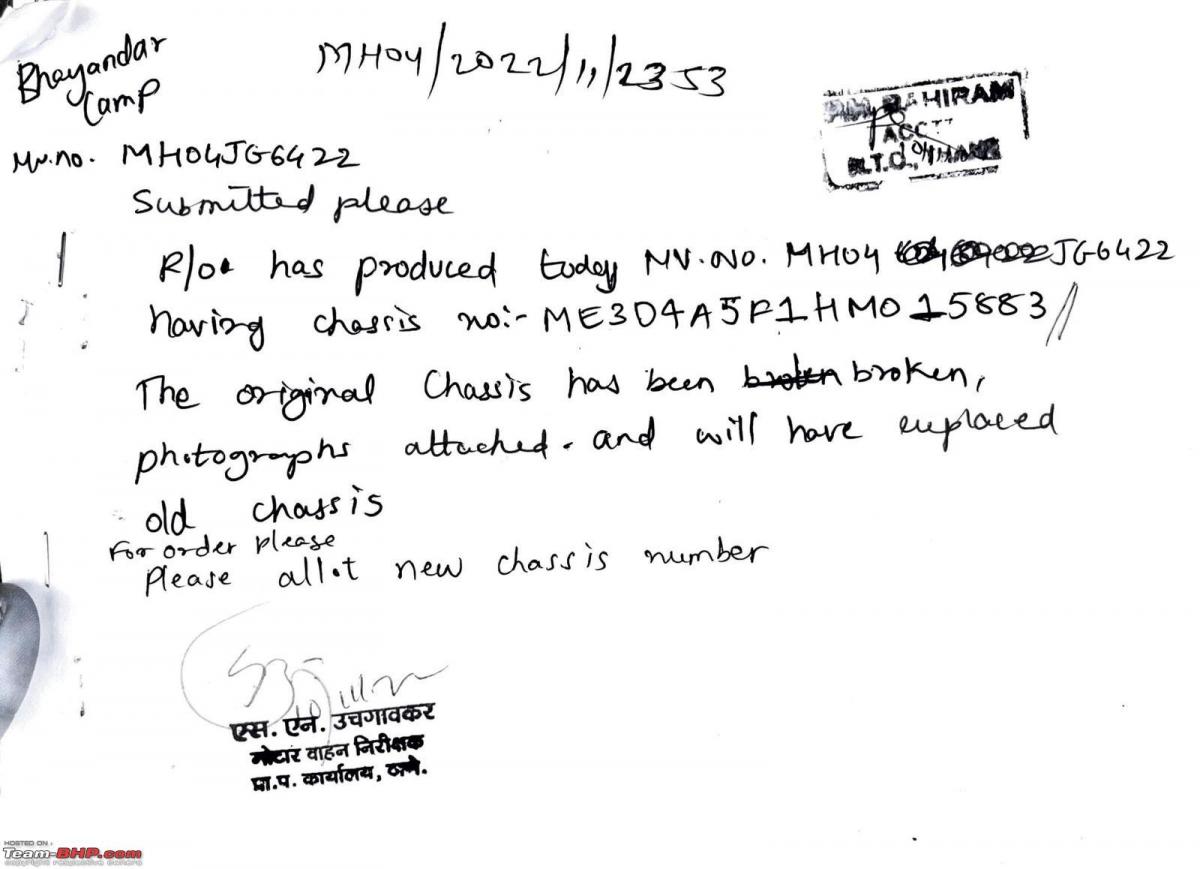 Bhayandar
Camp
MH04/2022/11/2353
BAHIRAM
ACCTT
Mv.no. MH04JG6422
Submitted please
R/o. has produced today MV.NO. MH04 JG6422
having chassis no:- ME3D4A5F1HM015883//
The original Chassis has been broken broken,
photographs attached. and will have euplaced
old chassis
For order please
Please allot new chassis number
एस. एन. उचगावकर
मोटार वाहन निरीक्षक
प्रा.प. कार्यालय, ठाणे.
HOSTED ON :
Team-BHP.com
copyright respective owners